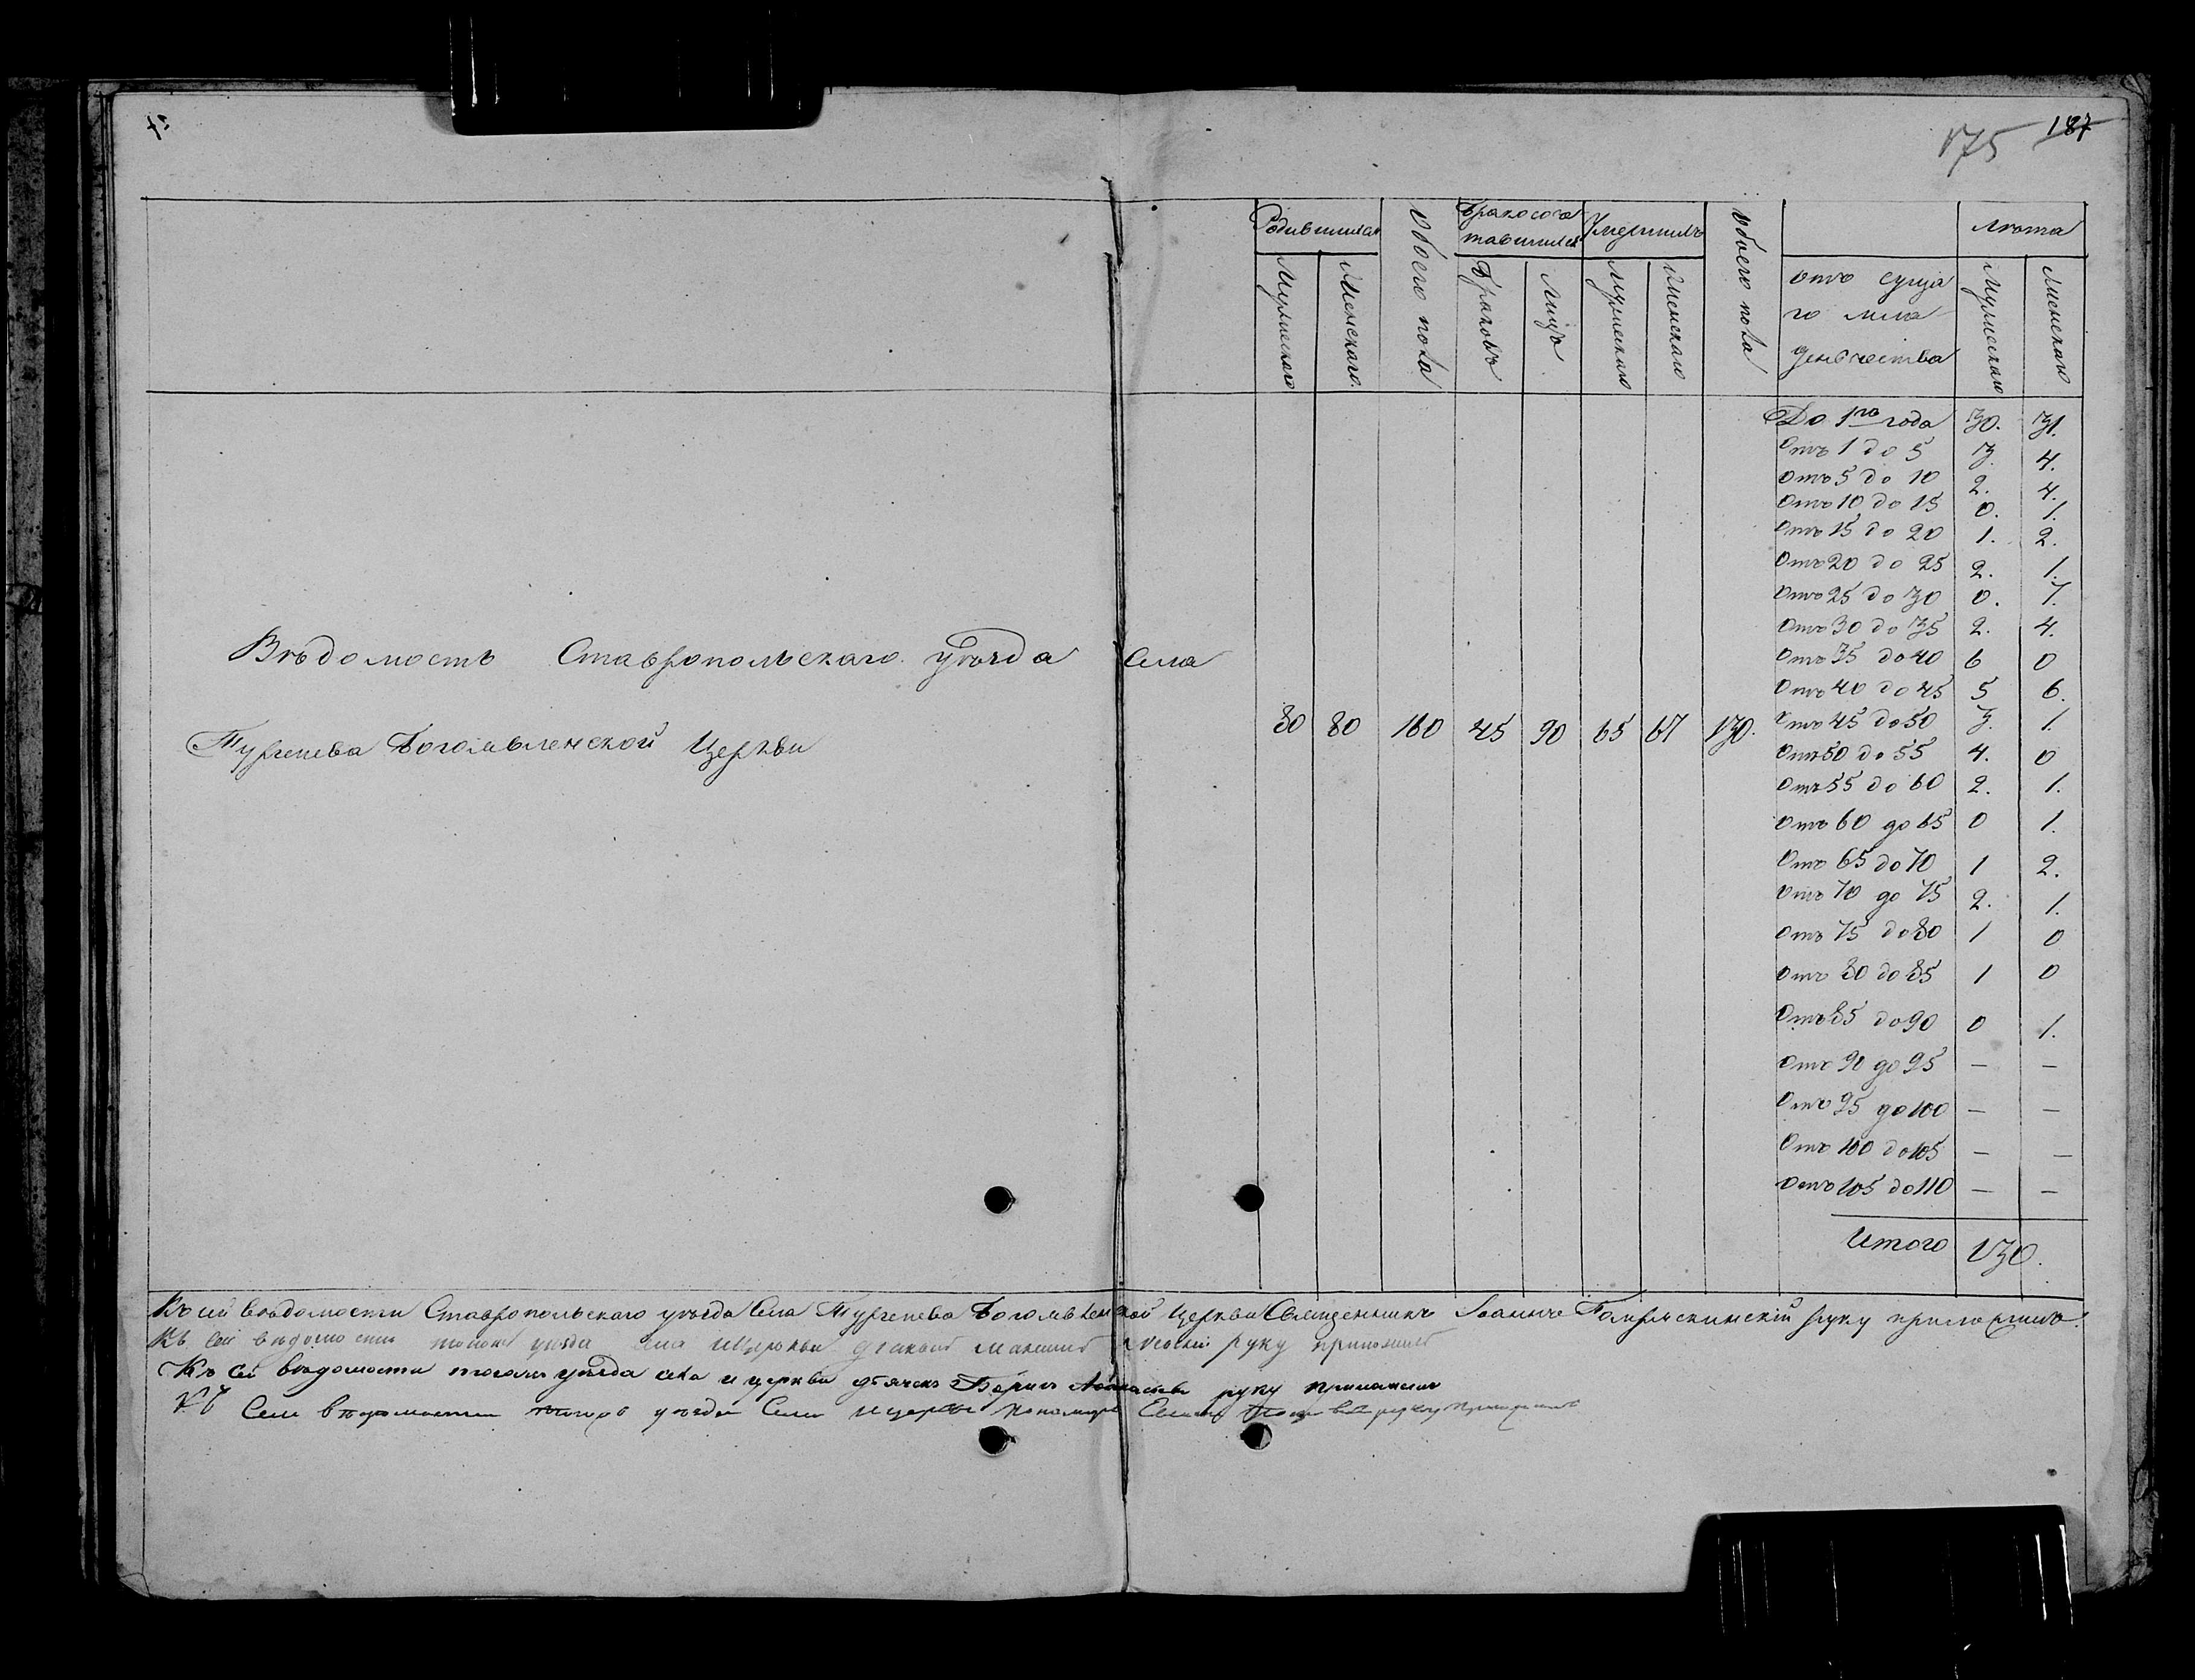 175 187
Родившихся
Обоего пола
Бракосоче
тавшихся
Умершихъ
Обоего пола
Лѣта
Мужескаго
Женскаго
Браковъ
Лицъ
Мужескаго
Женскаго
отъ суща
го мла
денчества
Мужескаго
Женскаго
До 1го года 30. 31.
Отъ 1 до 5 3. 4.
Отъ 5 до 10 2. 4.
Отъ 10 до 15 0. 1.
Отъ 15 до 20 1. 2.
Отъ 20 до 25 2. 1.
Отъ 25 до 30 0. 7.
Отъ 30 до 35 2. 4.
Отъ 35 до 40 6 0
Отъ 40 до 45 5 6.
Отъ 45 до 50 3. 1.
Отъ 50 до 55 4. 0
Отъ 55 до 60 2. 1.
Отъ 60 до 65 0 1.
Отъ 65 до 70 1 2.
Отъ 70 до 75 2. 1.
Отъ 75 до 80 1 0
Отъ 80 до 85 1 0
Отъ 85 до 90 0 1.
Отъ 90 до 95 — —
Отъ 95 до 100 — —
Отъ 100 до 105 — —
Отъ 105 до 110 — —
Итого 130.
Вѣдомость Ставропольскаго уѣзда Села
Тургенева Богоявленской Церкви
80 80 160 45 90 65 67 130.
Къ сей вѣдомости Ставропольскаго уѣзда Села Тургенева Богоявленской Церкви Священникъ Іоаннъ руку приложилъ.
Къ сей вѣдомости тогожъ уѣзда села и Церкви діаконъ руку приложилъ
Къ сей вѣдомости тогожъ уѣзда села и церкви дьячекъ Борисъ руку приложилъ
Къ Сей вѣдомости тогожъ уѣзда Села и церкви пономарь руку приложилъ